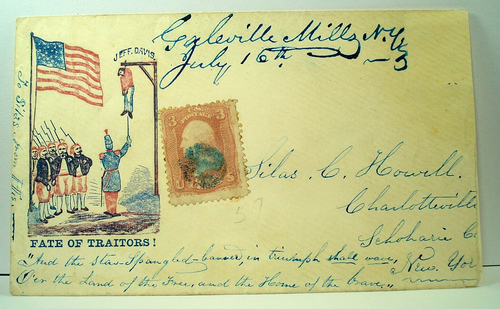 Galeville Mills N.Y.
July 16th
JEFF. DAVIS
3 3
POSTAGE
Silas. C. Howell.
Charlotteville
Schoharie Co
New. Yor
FATE OF TRAITORS!
"And the star-spangled-banner in triumph shall wave,
O'er the Land of the Free, and the Home of the brave."
To Silas. from